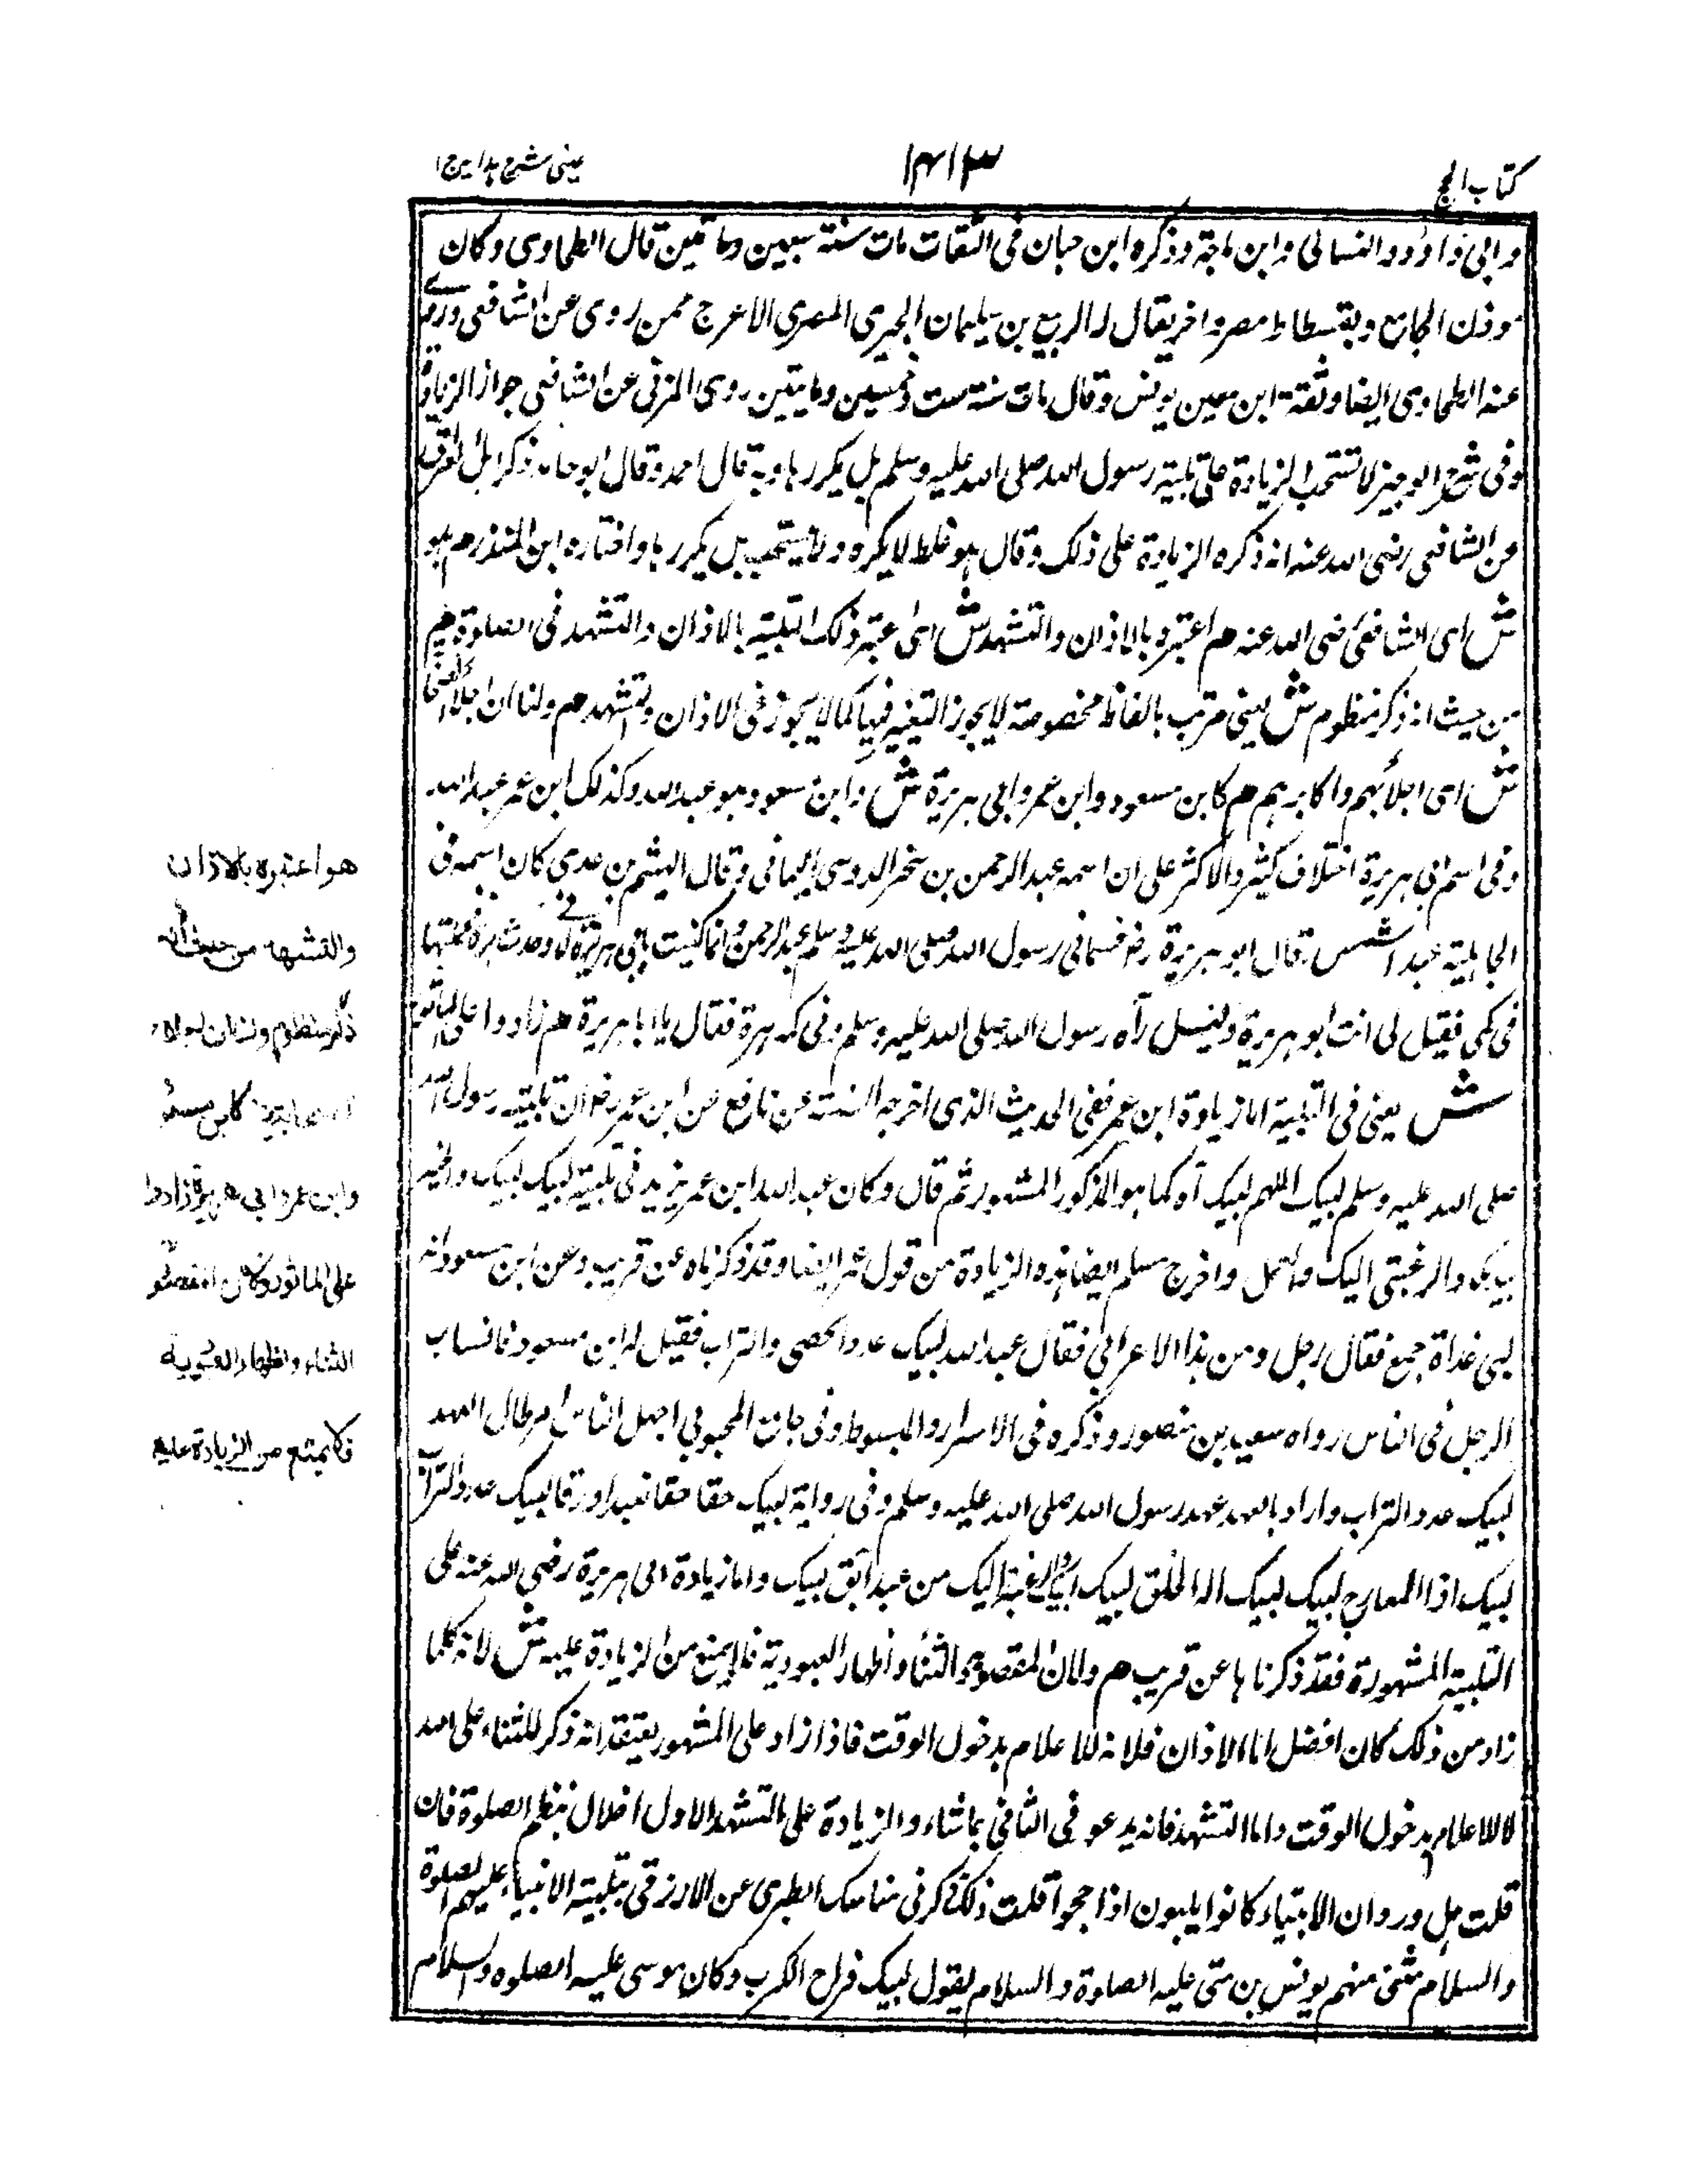 كتاب الحج
١٤١٣
عينى شرح هدايه ج ١
وابى داؤد والنسائى وابن ماجة وذكره ابن حبان فى الثقات مات سنة سبعين ومائتين قال الطحاوى وكان
موذن الجامع وبفسطاط مصر واخر يقال له الربيع بن سليمان الجيزى المصرى الاعرج ممن روى عن الشافعى وروى
عنه الطحاوى ايضا وثقة ابن يونس وقال مات سنة ست وخمسين ومايتين روى المزنى عن الشافعى جواز الزيادة
وفى شرح الوجيز لا تستحب الزيادة على تلبية رسول الله صلى الله عليه وسلم بل يكررها وبه قال احمد وقال ابو حامد ذكر اهل العراق
عن الشافعى رضى الله عنه انه ذكره الزيادة على ذلك وقال هو غلط لا يكره ولا يستحب بل يكررها واختاره ابن المنذر هم هو
ش اى الشافعى رضى الله عنه هم اعتبره بالاذان والتشهد ش اى اعتبر ذلك التلبية بالاذان والتشهد فى الصلوة هم
من حيث انه ذكر منظوم ش يعنى مرتب بالفاظ مخصوصة لا يجوز التغيير فيها كما لا يجوز فى الاذان والتشهد هم ولنا ان اجلاء الصحابة
ش اى اجلائهم واكابرهم هم كابن مسعود وابن عمر وابى هريرة ش وابن مسعود هو عبد الله وكذلك ابن عمر عبد الله
وفى اسم ابى هريرة اختلاف كثير والاكثر على ان اسمه عبد الرحمن بن صخر الدوسى اليمانى وقال الهيثم بن عدى كان اسمه فى
الجاهلية عبد الشمس قال ابو هريرة رض فسمانى رسول الله صلى الله عليه وسلم عبد الرحمن وانما كنيت بابى هريرة لانى وجدت هرة فجعلتها
فى كمى فقيل لى انت ابو هريرة وقيل رآه رسول الله صلى الله عليه وسلم وفى كمه هرة فقال يا ابا هريرة هم زادوا على الماثور
ش يعنى فى التلبية اما زيادة ابن عمر ففى الحديث الذى اخرجه الستة عن نافع عن ابن عمر رض ان تلبية رسول الله
صلى الله عليه وسلم لبيك اللهم لبيك آه كما هو المذكور المشهور ثم قال وكان عبد الله ابن عمر يزيد فى تلبيته لبيك لبيك والخير
بيديك والرغبتى اليك والعمل واخرج مسلم ايضا هذه الزيادة من قول عمر ايضا وقد ذكرناه عن قريب وعن ابن مسعود انه
لبى غداة جمع فقال رجل ومن هذا الاعرابى فقال عبد الله لبيك عدد الحصى والتراب فقيل له ابن مسعود فانساب
الرجل فى الناس رواه سعيد بن منصور وذكره فى الاسرار والمبسوط وفى جامع المحبوبى اجهل الناس ام طال العهد
لبيك عدد التراب واراد بالعهد عهد رسول الله صلى الله عليه وسلم وفى رواية لبيك حقا حقا تعبدا ورقا لبيك عدد التراب
لبيك اذا المعارج لبيك لبيك اله الخلق لبيك والرغبة اليك من عبد آبق لبيك واما زيادة ابى هريرة رضى الله عنه على
التلبية المشهورة فقد ذكرناها عن قريب هم ولان المقصود الثناء واظهار العبودية فلا يمنع من الزيادة عليه ش لانه كلما
زاد من ذلك كان افضل اما الاذان فلانه للاعلام بدخول الوقت فاذا زاد على المشهور يعتقد انه ذكر للثناء على الله
لا للاعلام بدخول الوقت واما التشهد فانه يدعو فى الثانى بما شاء والزيادة على التشهد الاول اخلال بنظم الصلوة فان
قلت هل ورد ان الانبياء كانوا يلبون اذا حجوا قلت ذكر فى مناسك الطبرى عن الازرقى تلبية الانبياء عليهم الصلوة
والسلام شتى منهم يونس بن متى عليه الصلوة والسلام يقول لبيك فراج الكرب وكان موسى عليه الصلوه والسلام
هو اعتبره بالاذان
والتشهد من حيث انه
ذكر منظوم ولنا ان اجلاء
الصحابة كابن مسعود
وابن عمر وابي هريرة زادوا
على الماثور ولان المقصود
الثناء واظهار العبودية
فلا يمنع من الزيادة عليه